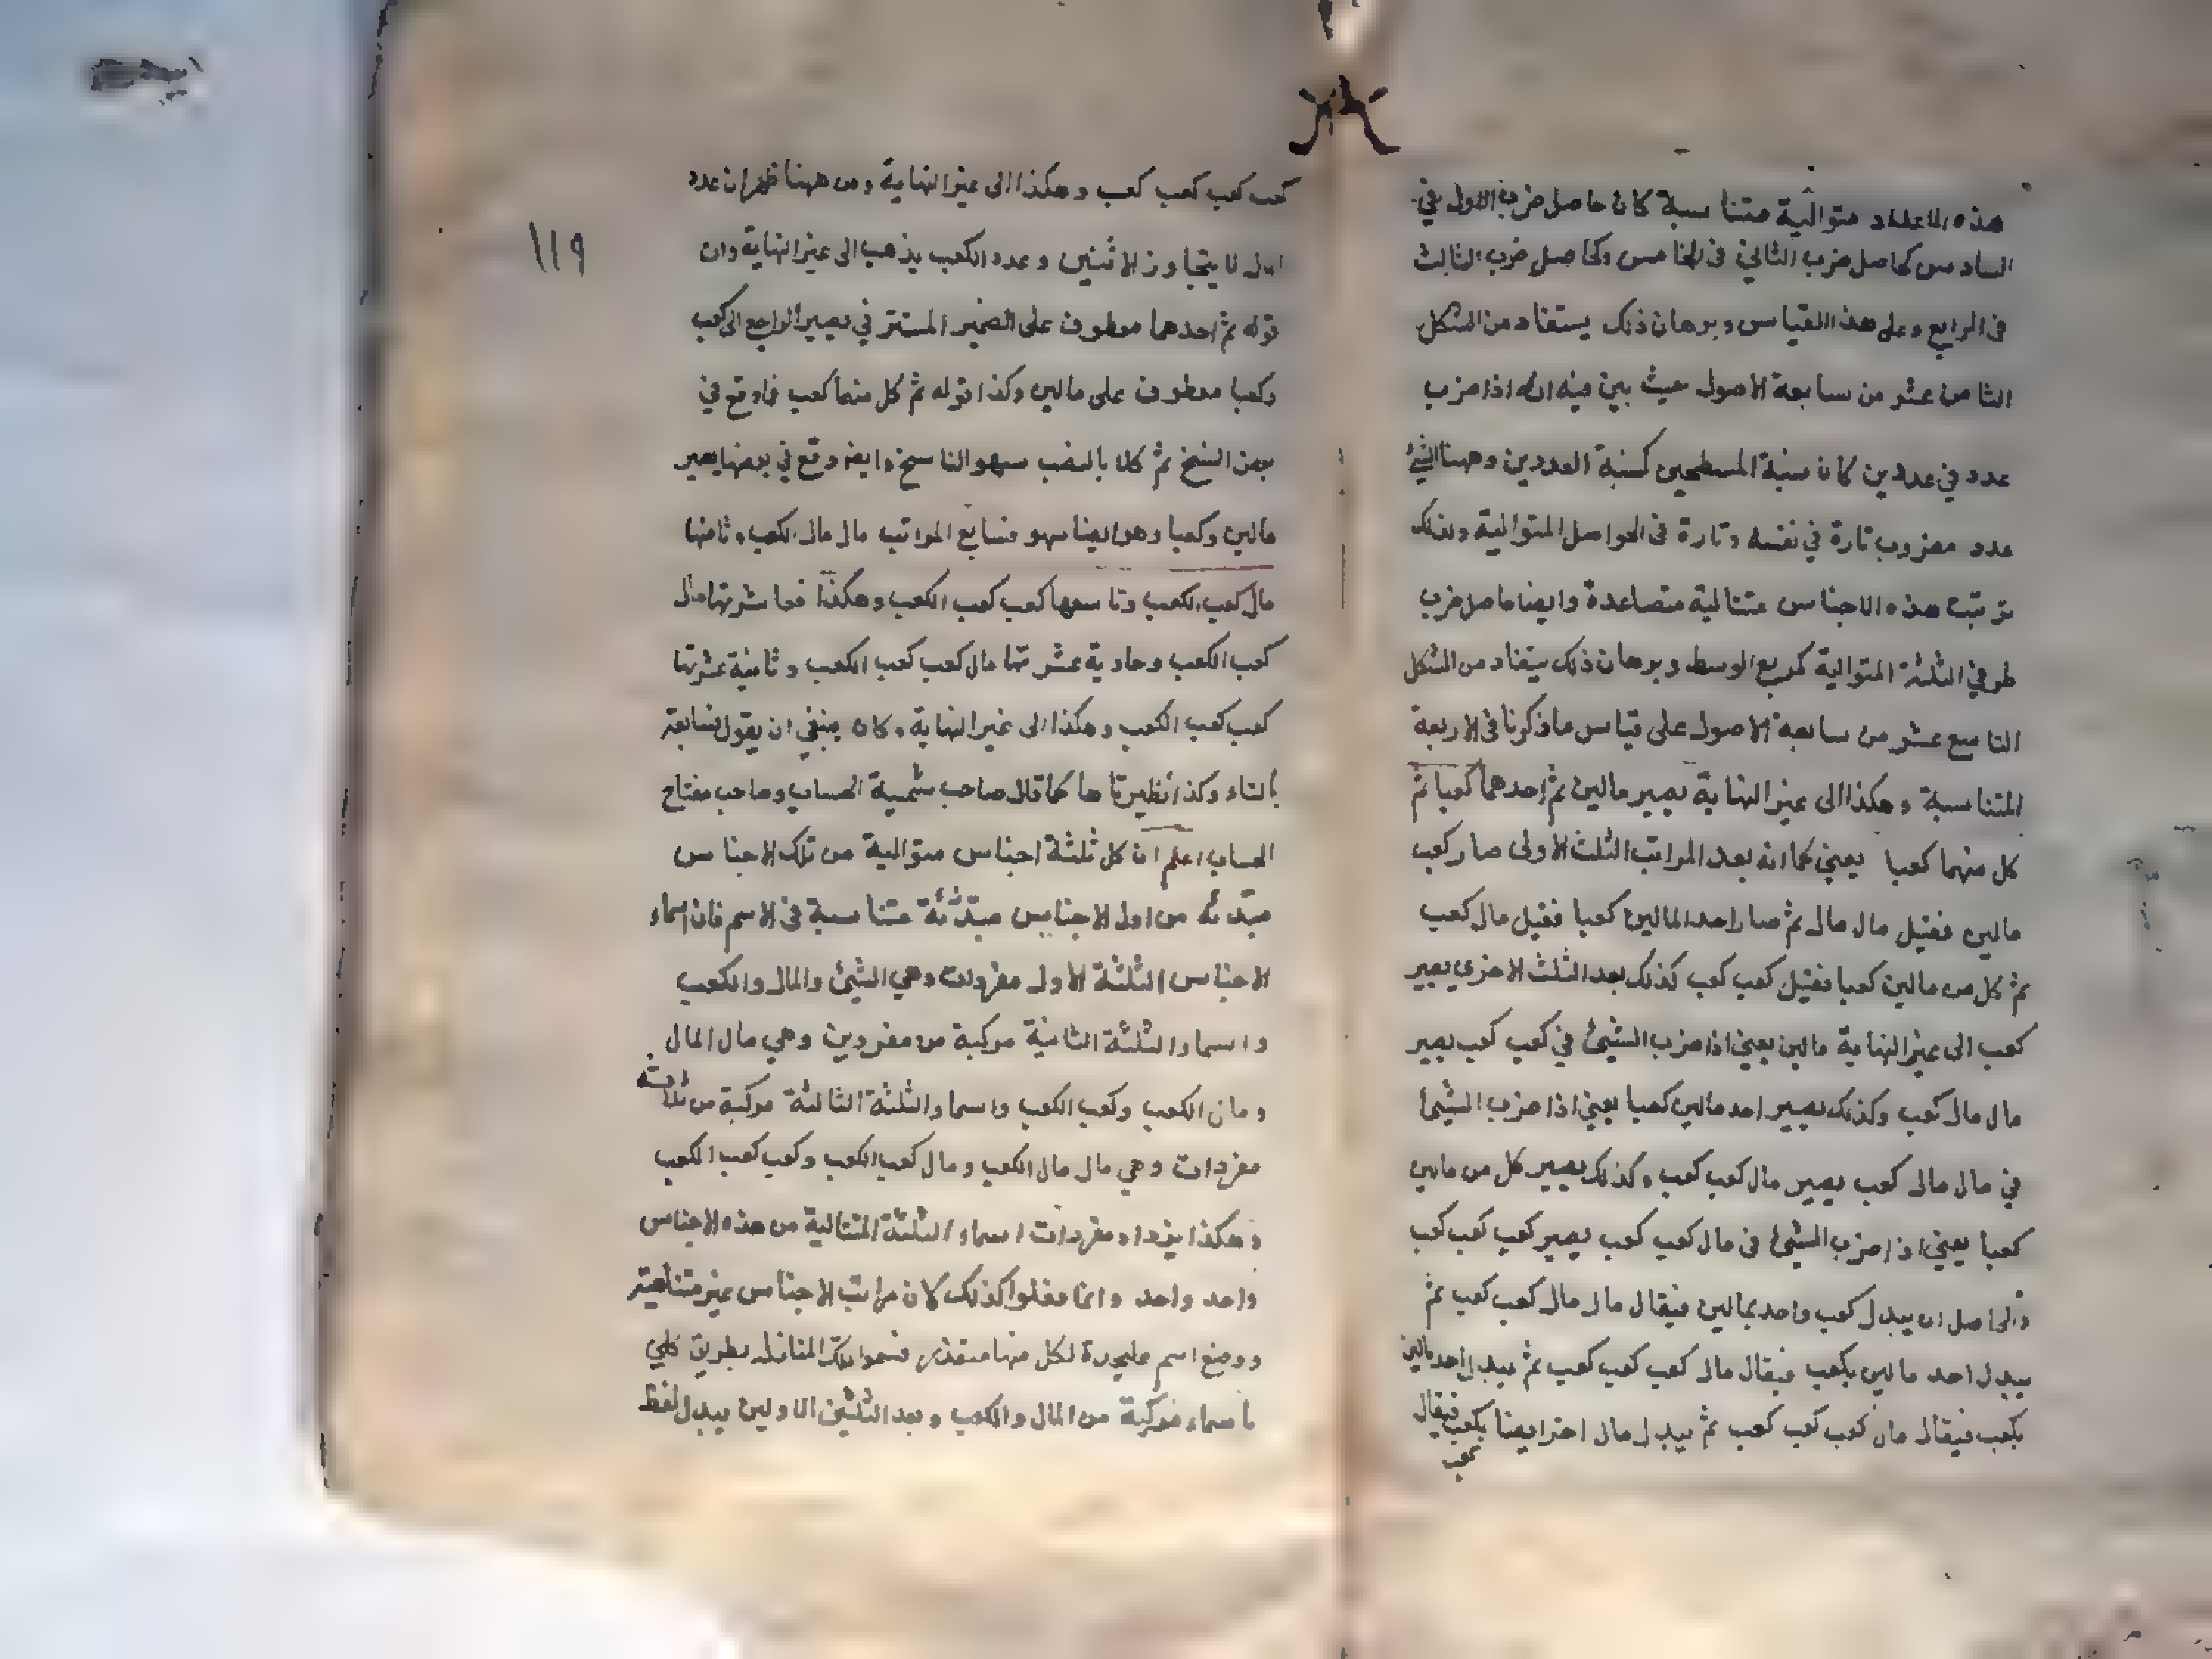 هذه الاعداد متوالية متناسبة كان حاصل ضرب الاول في
السادس كحاصل ضرب الثاني في الخامس وكحاصل ضرب الثالث
في الرابع وعلى هذا القياس وبرهان ذلك يستفاد من الشكل
الثامن عشر من سابعة الاصول حيث بين فيه انه اذا ضرب
عدد في عددين كان نسبة المسطحين كنسبة العددين وههنا الشئ
عدد مضروب تارة في نفسه وتارة في الحواصل المتوالية ولذلك
ترتبت هذه الاجناس متتالية متصاعدة وايضا حاصل ضرب
طرفي الثلثة المتوالية كمربع الوسط وبرهان ذلك يستفاد من الشكل
التاسع عشر من سابعة الاصول على قياس ما ذكرنا في الاربعة
المتناسبة وهكذا الى غير النهاية يصير مالين ثم احدهما كعبا ثم
كل منهما كعبا يعني كما انه بعد المراتب الثلث الاولى صار كعب
مالين فقيل مال مال ثم صار احد المالين كعبا فقيل مال كعب
ثم كل من مالين كعبا فقيل كعب كعب كذلك بعد الثلث الاخرى يصير
كعب الى غير النهاية مالين يعني اذا ضرب الشئ في كعب كعب يصير
مال مال كعب وكذلك يصير احد مالين كعبا يعني اذا ضرب الشئ
في مال مال كعب يصير مال كعب كعب وكذلك يصير كل من مالين
كعبا يعني اذا ضرب الشئ في مال كعب كعب يصير كعب كعب كعب
والحاصل ان يبدل كعب واحد بمالين فيقال مال مال كعب كعب ثم
يبدل احد مالين بكعب فيقال مال كعب كعب كعب ثم يبدل احد مالين
بكعب فيقال مال كعب كعب كعب ثم يبدل مال اخر ايضا بكعب فيقال
كعب
١١٩
كعب كعب كعب كعب وهكذا الى غير النهاية ومن ههنا ظهر ان عدد
المال لا يتجاوز الاثنين وعدد الكعب يذهب الى غير النهاية وان
قوله ثم احدهما معطوف على الضمير المستتر في يصير الراجع الى كعب
وكعبا معطوف على مالين وكذا قوله ثم كل منهما كعب فما وقع في
بعض النسخ ثم كلا بالنصب سهو الناسخ وايضا وقع في بعضها يصير
مالين وكعبا وهو ايضا سهو فسابع المراتب مال مال الكعب وثامنها
مال كعب الكعب وتاسعها كعب كعب الكعب وهكذا فعاشرتها مال مال
كعب الكعب وحادية عشرتها مال كعب كعب الكعب وثانية عشرتها
كعب كعب الكعب وهكذا الى غير النهاية وكان ينبغي ان يقول فسابعة
بالتاء وكذا نظيرتاها كما قال صاحب شمسية الحساب وصاحب مفتاح
الحساب اعلم ان كل ثلثة اجناس متوالية من تلك الاجناس
مبتدئة من اول الاجناس متناسبة في الاسم فان اسماء
الاجناس الثلثة الاول مفردات وهي الشئ والمال والكعب
واسماء الثلثة الثانية مركبة من مفردين وهي مال المال
ومال الكعب وكعب الكعب واسماء الثلثة الثالثة مركبة من ثلاثة
مفردات وهي مال مال الكعب ومال كعب الكعب وكعب كعب الكعب
وهكذا يزداد مفردات اسماء الثلثة المتتالية من هذه الاجناس
واحد واحد وانما فعلوا كذلك لان مراتب الاجناس غير متناهية
ووضع اسم عليحدة لكل منها متعذر فسموا تلك المنازل بطريق كلي
باسماء مركبة من المال والكعب وبعد الثلثين الاولين يبدل لفظ